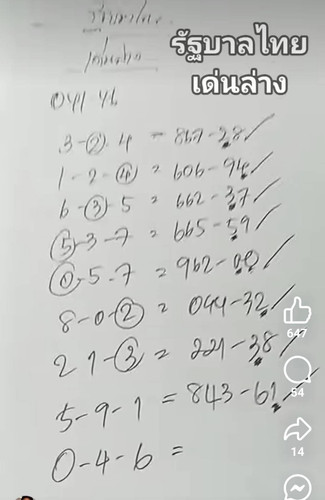 รัฐบาลไทย
เด่นล่าง
รัฐบาลไทย
เด่นล่าง
3-2-4 = 867-28
1-2-4 = 606-94
6-3-5 = 662-37
5-3-7 = 665-59
0-5-7 = 962-00
8-0-2 = 044-32
2 1-3 = 221-38
5-9-1 = 843-61
0-4-6 =
647
54
14